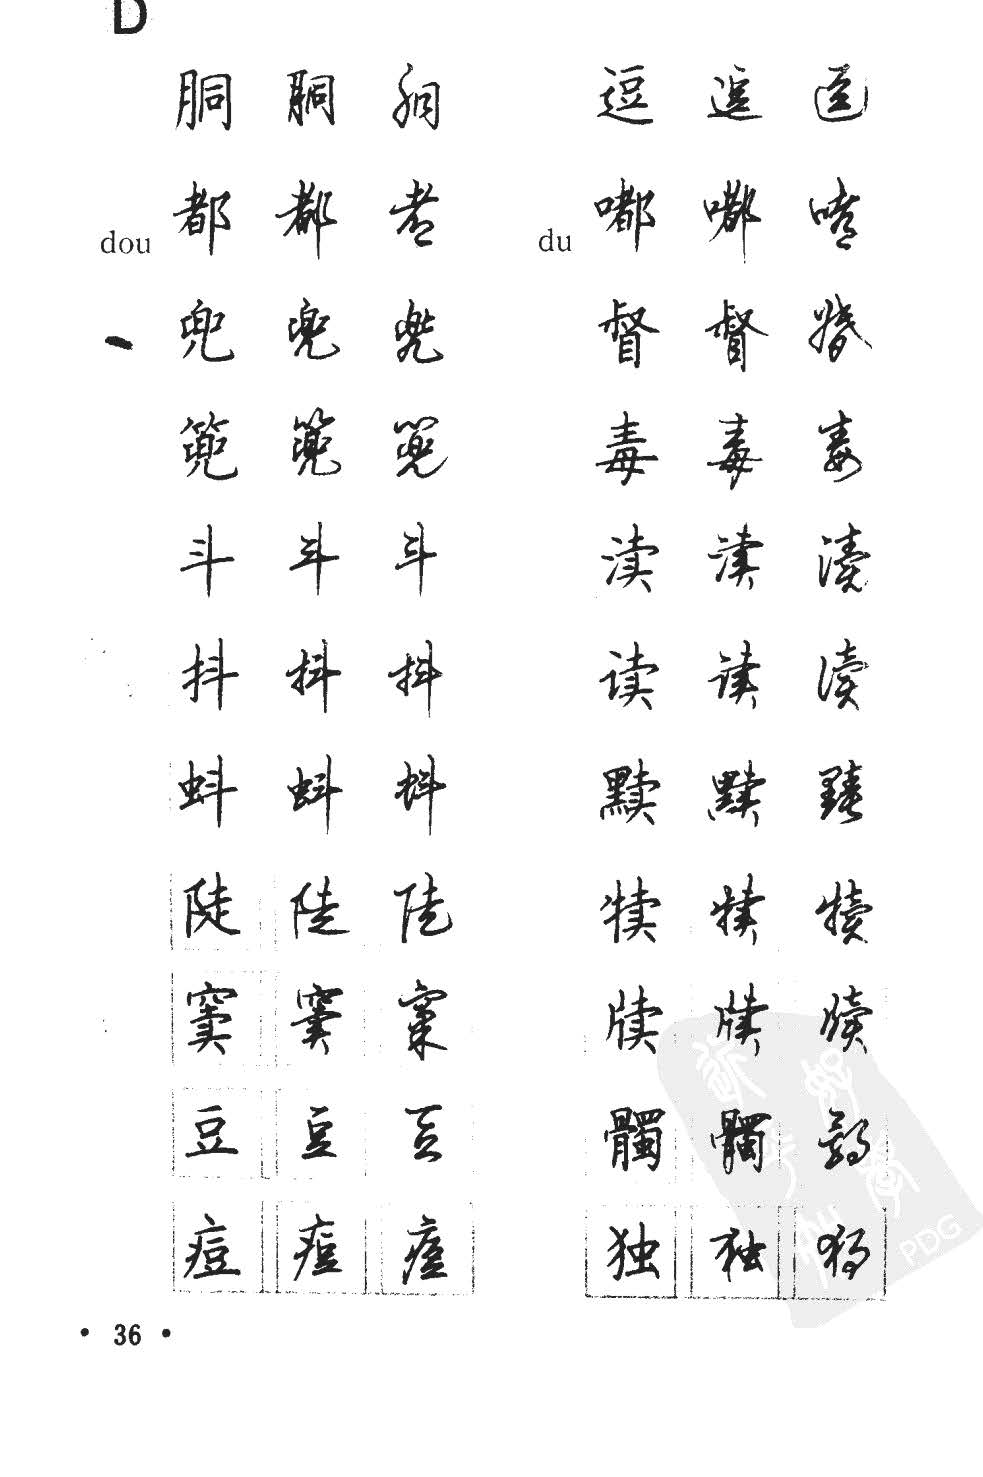 D
胴 胴 胴 逗 逗 逗
dou 都 都 都 du 嘟 嘟 嘟
兜 兜 兜 督 督 督
篼 篼 篼 毒 毒 毒
斗 斗 斗 渎 渎 渎
抖 抖 抖 读 读 读
蚪 蚪 蚪 黩 黩 黩
陡 陡 陡 犊 犊 犊
窦 窦 窦 牍 牍 牍
豆 豆 豆 髑 髑 髑
痘 痘 痘 独 独 独
PDG
• 36 •